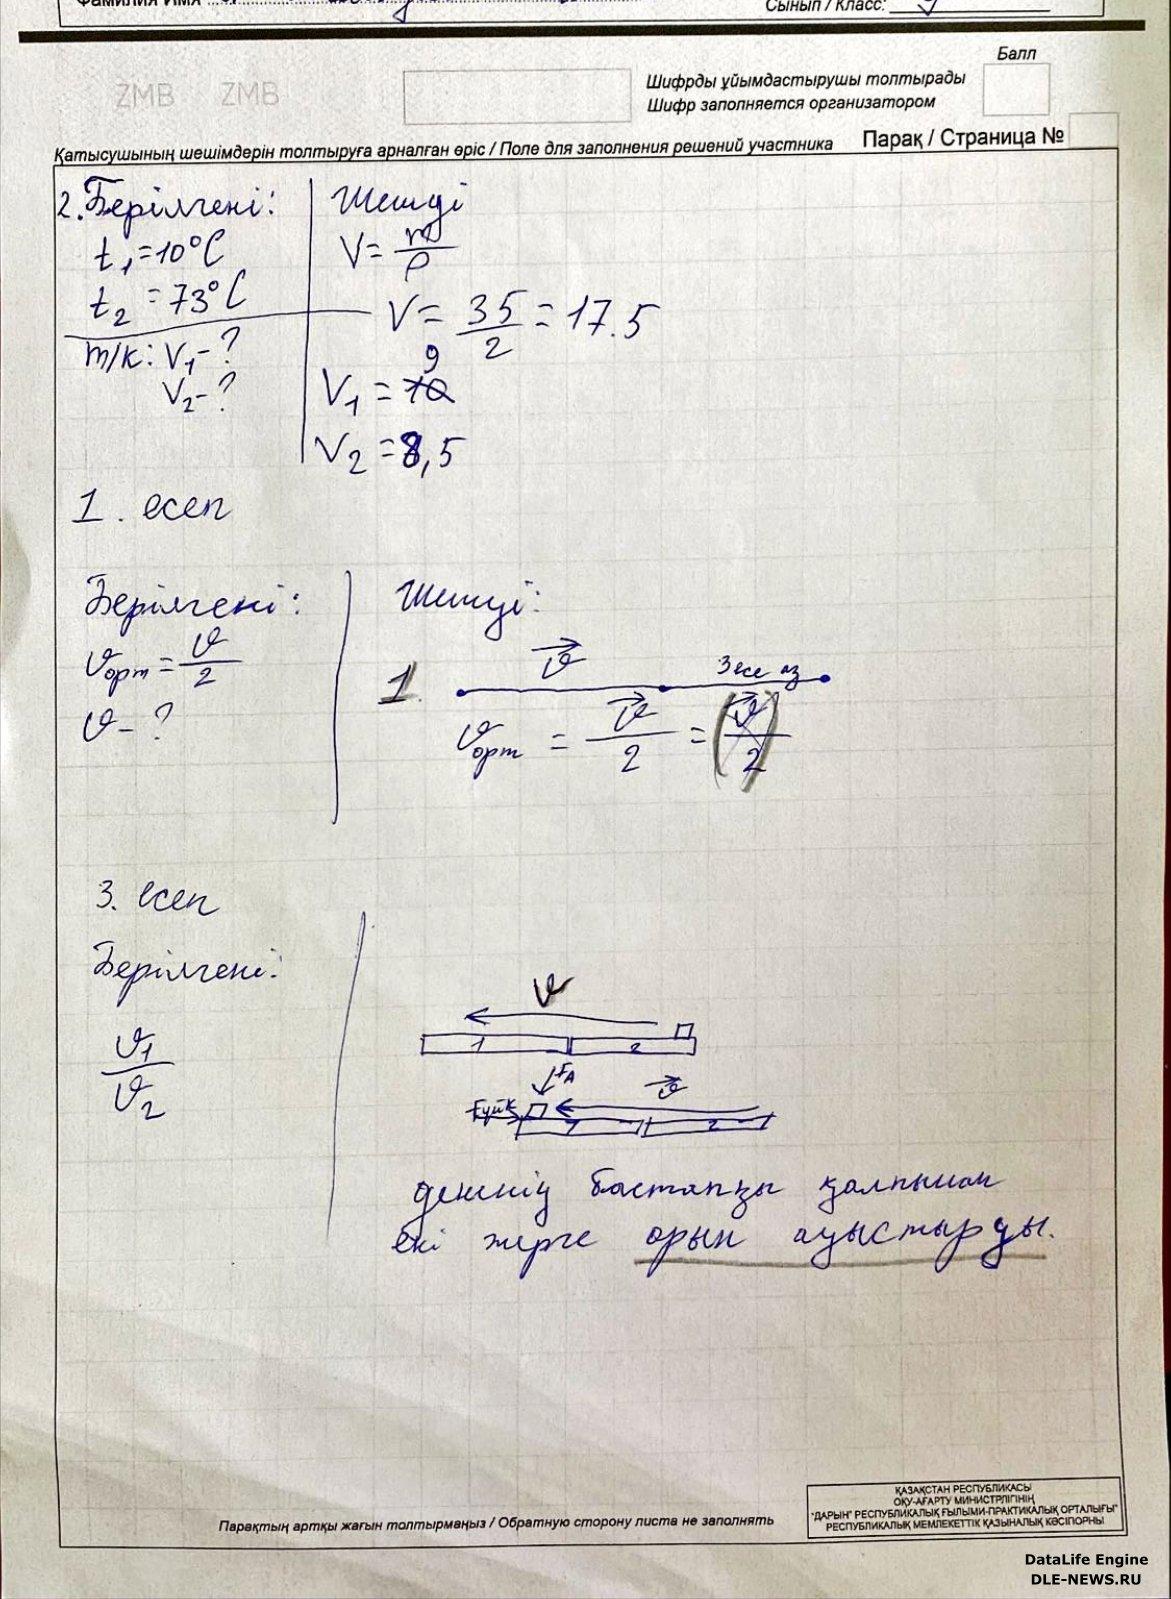 Фамилия Имя
Сынып / Класс: 9
ZMB ZMB
Балл
Шифрды ұйымдастырушы толтырады
Шифр заполняется организатором
Қатысушының шешімдерін толтыруға арналған өріс / Поле для заполнения решений участника
Парақ / Страница №
2. Берілгені:
t₁=10°C
t₂=73°C
т/к: V₁-?
V₂-?
Шешуі
V= m/ρ
V= 35/2 =17.5
9
V₁=10
V₂=8,5
1. есеп
Берілгені:
υорт=υ/2
υ-?
Шешуі:
υ
3 есе аз
1.
υорт = υ/2 = (υ/2)
3. есеп
Берілгені:
υ₁/υ₂
υ
1 2
FA
υ
Fүйк
1 2
дененің бастапқы қалпынан
екі жерге орын ауыстырды.
Парақтың артқы жағын толтырмаңыз / Обратную сторону листа не заполнять
ҚАЗАҚСТАН РЕСПУБЛИКАСЫ
ОҚУ-АҒАРТУ МИНИСТРЛІГІНІҢ
"ДАРЫН" РЕСПУБЛИКАЛЫҚ ҒЫЛЫМИ-ПРАКТИКАЛЫҚ ОРТАЛЫҒЫ"
РЕСПУБЛИКАЛЫҚ МЕМЛЕКЕТТІК ҚАЗЫНАЛЫҚ КӘСІПОРНЫ
DataLife Engine
DLE-NEWS.RU